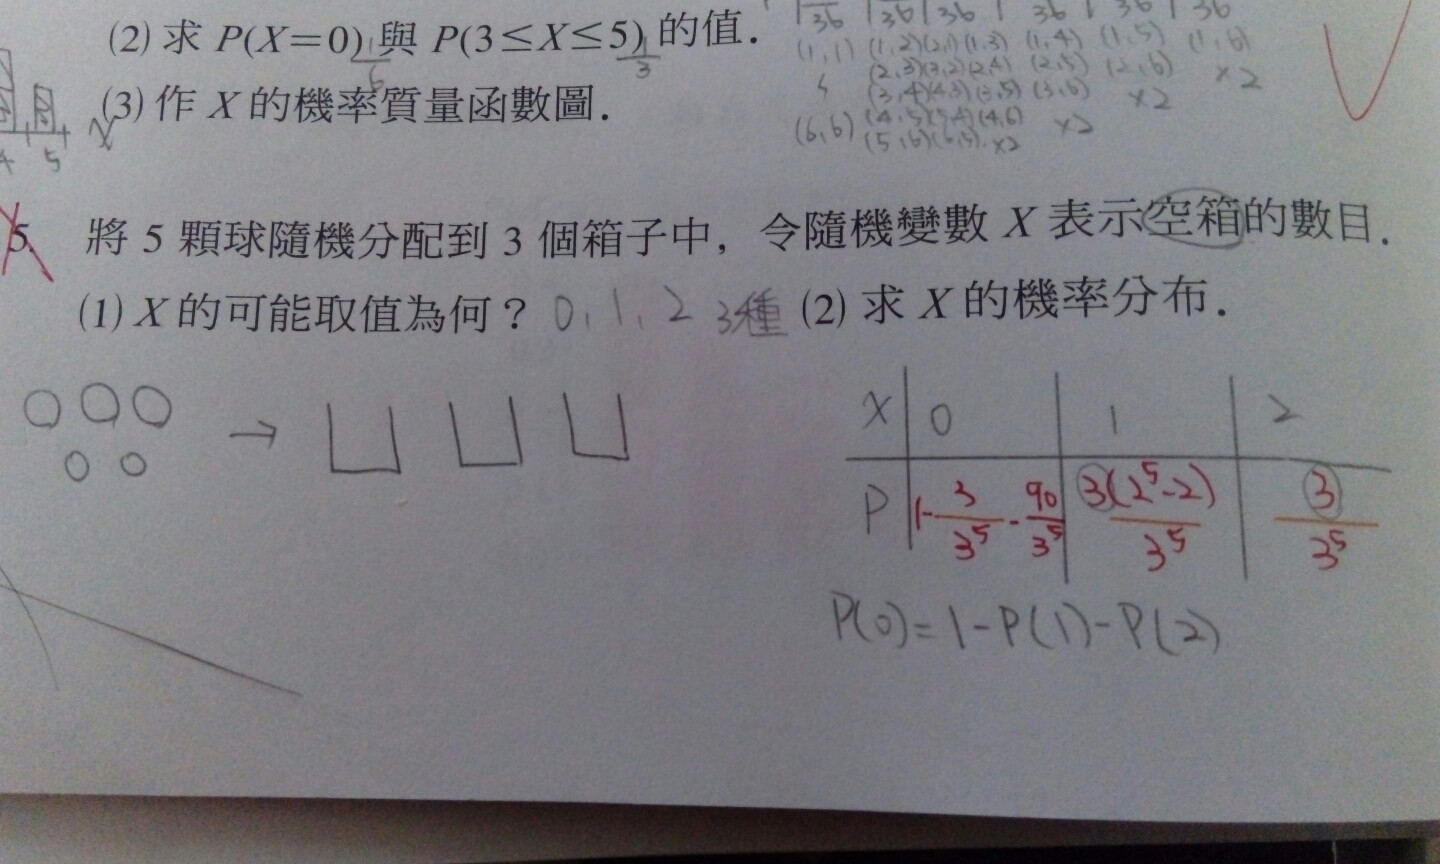 (2) 求 P(X=0) 1/6 與 P(3≤X≤5) 1/3 的值.
36 36 36 36 36 36
(1,1) (1,2)(2,1)(1,3) (1,4) (1,5) (1,6)
(2,3)(3,2)(2,4) (2,5) (2,6) ×2
(3,4)(4,3)(3,5) (3,6) ×2
(6,6) (4,5)(5,4)(4,6) ×2
(5,6)(6,5) ×2
(3) 作 X 的機率質量函數圖.
4 5 X
5. 將 5 顆球隨機分配到 3 個箱子中，令隨機變數 X 表示空箱的數目.
(1) X 的可能取值為何？ 0, 1, 2 3種 (2) 求 X 的機率分布.
X 0 1 2
P 1-3/3⁵-90/3⁵ 3(2⁵-2)/3⁵ 3/3⁵
P(0)=1-P(1)-P(2)